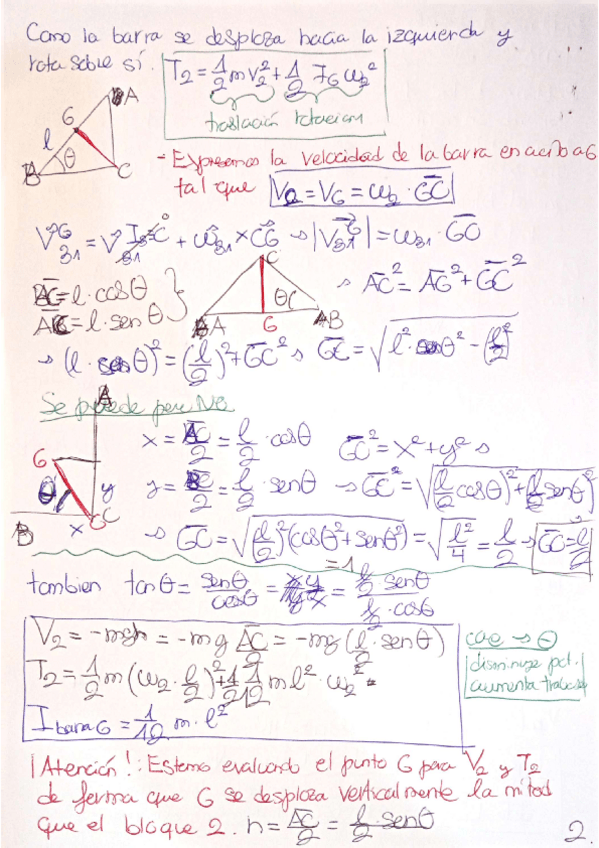 Como la barra se desplaza hacia la izquierda y
rota sobre sí. T₂ = 1/2 m v₂² + 1/2 I_G ω₂²
traslación rotación
A
G
l
θ
B
C
- Expresamos la velocidad de la barra en
tal que V₂ = V_G = ω₂ · GC
V^G₃₁ = V^I=C₃₁ + ω₃₁ × CG → |V^G₃₁| = ω₃₁ · GC
BC = l · cos θ
AC = l · sen θ
C
θ
A
G
B
→ AC² = AG² + GC²
→ (l · sen θ)² = (l/2)² + GC² → GC = √(l² · sen θ² - (l/2)²)
Se puede pero No
A
G
θ
y
B
x
C
x = BC/2 = l/2 · cos θ
GC² = x² + y² →
y = AC/2 = l/2 · sen θ → GC² = √((l/2 cos θ)² + (l/2 sen θ)²
→ GC = √((l/2)² (cos θ² + sen θ²)) = √(l²/4) = l/2 → GC = l/2
= 1
tambien tan θ = sen θ/cos θ = y/x = l/2 sen θ / l/2 · cos θ
V₂ = -mgh = -mg AC/2 = -mg (l/2 · sen θ)
cae → ⊖
T₂ = 1/2 m (ω₂ · l/2)² + 1/2 1/12 m l² · ω₂²
disminuye pot.
aumenta trabajo
I barra G = 1/12 m · l²
¡Atención!: Estamos evaluando el punto G para V₂ y T₂
de forma que G se desplaza verticalmente la mitad
que el bloque 2. h = AC/2 = l/2 · sen θ
2.